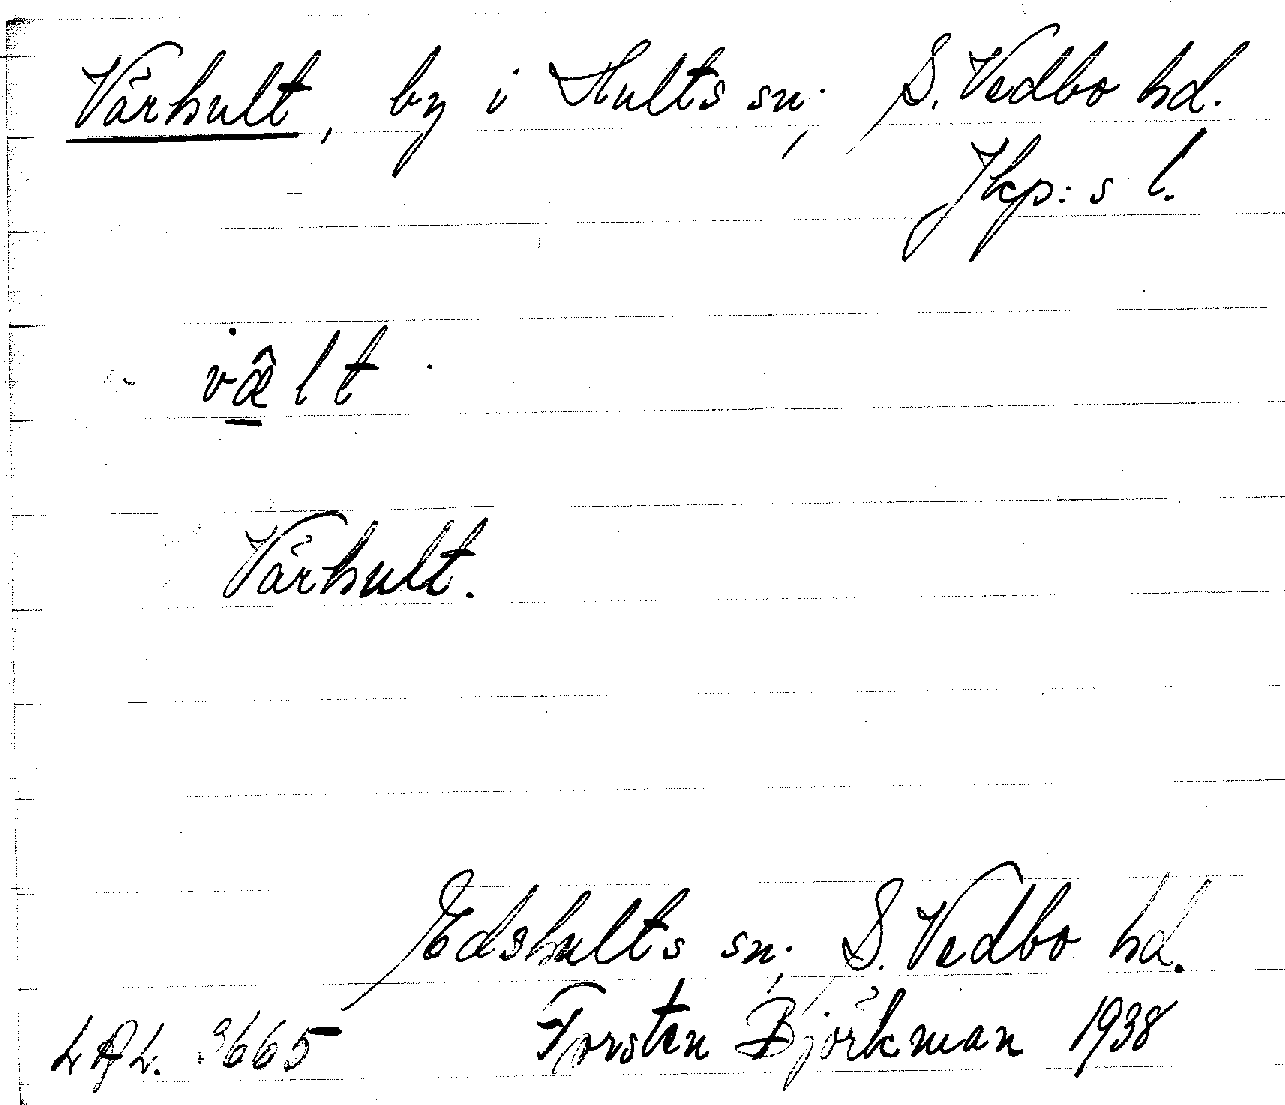 Vårhult, by i Hults sn, S. Vedbo hd.
Jkp:s l.
Vårhult.
Edshults sn, S. Vedbo hd.
3665 Torsten Björkman 1938